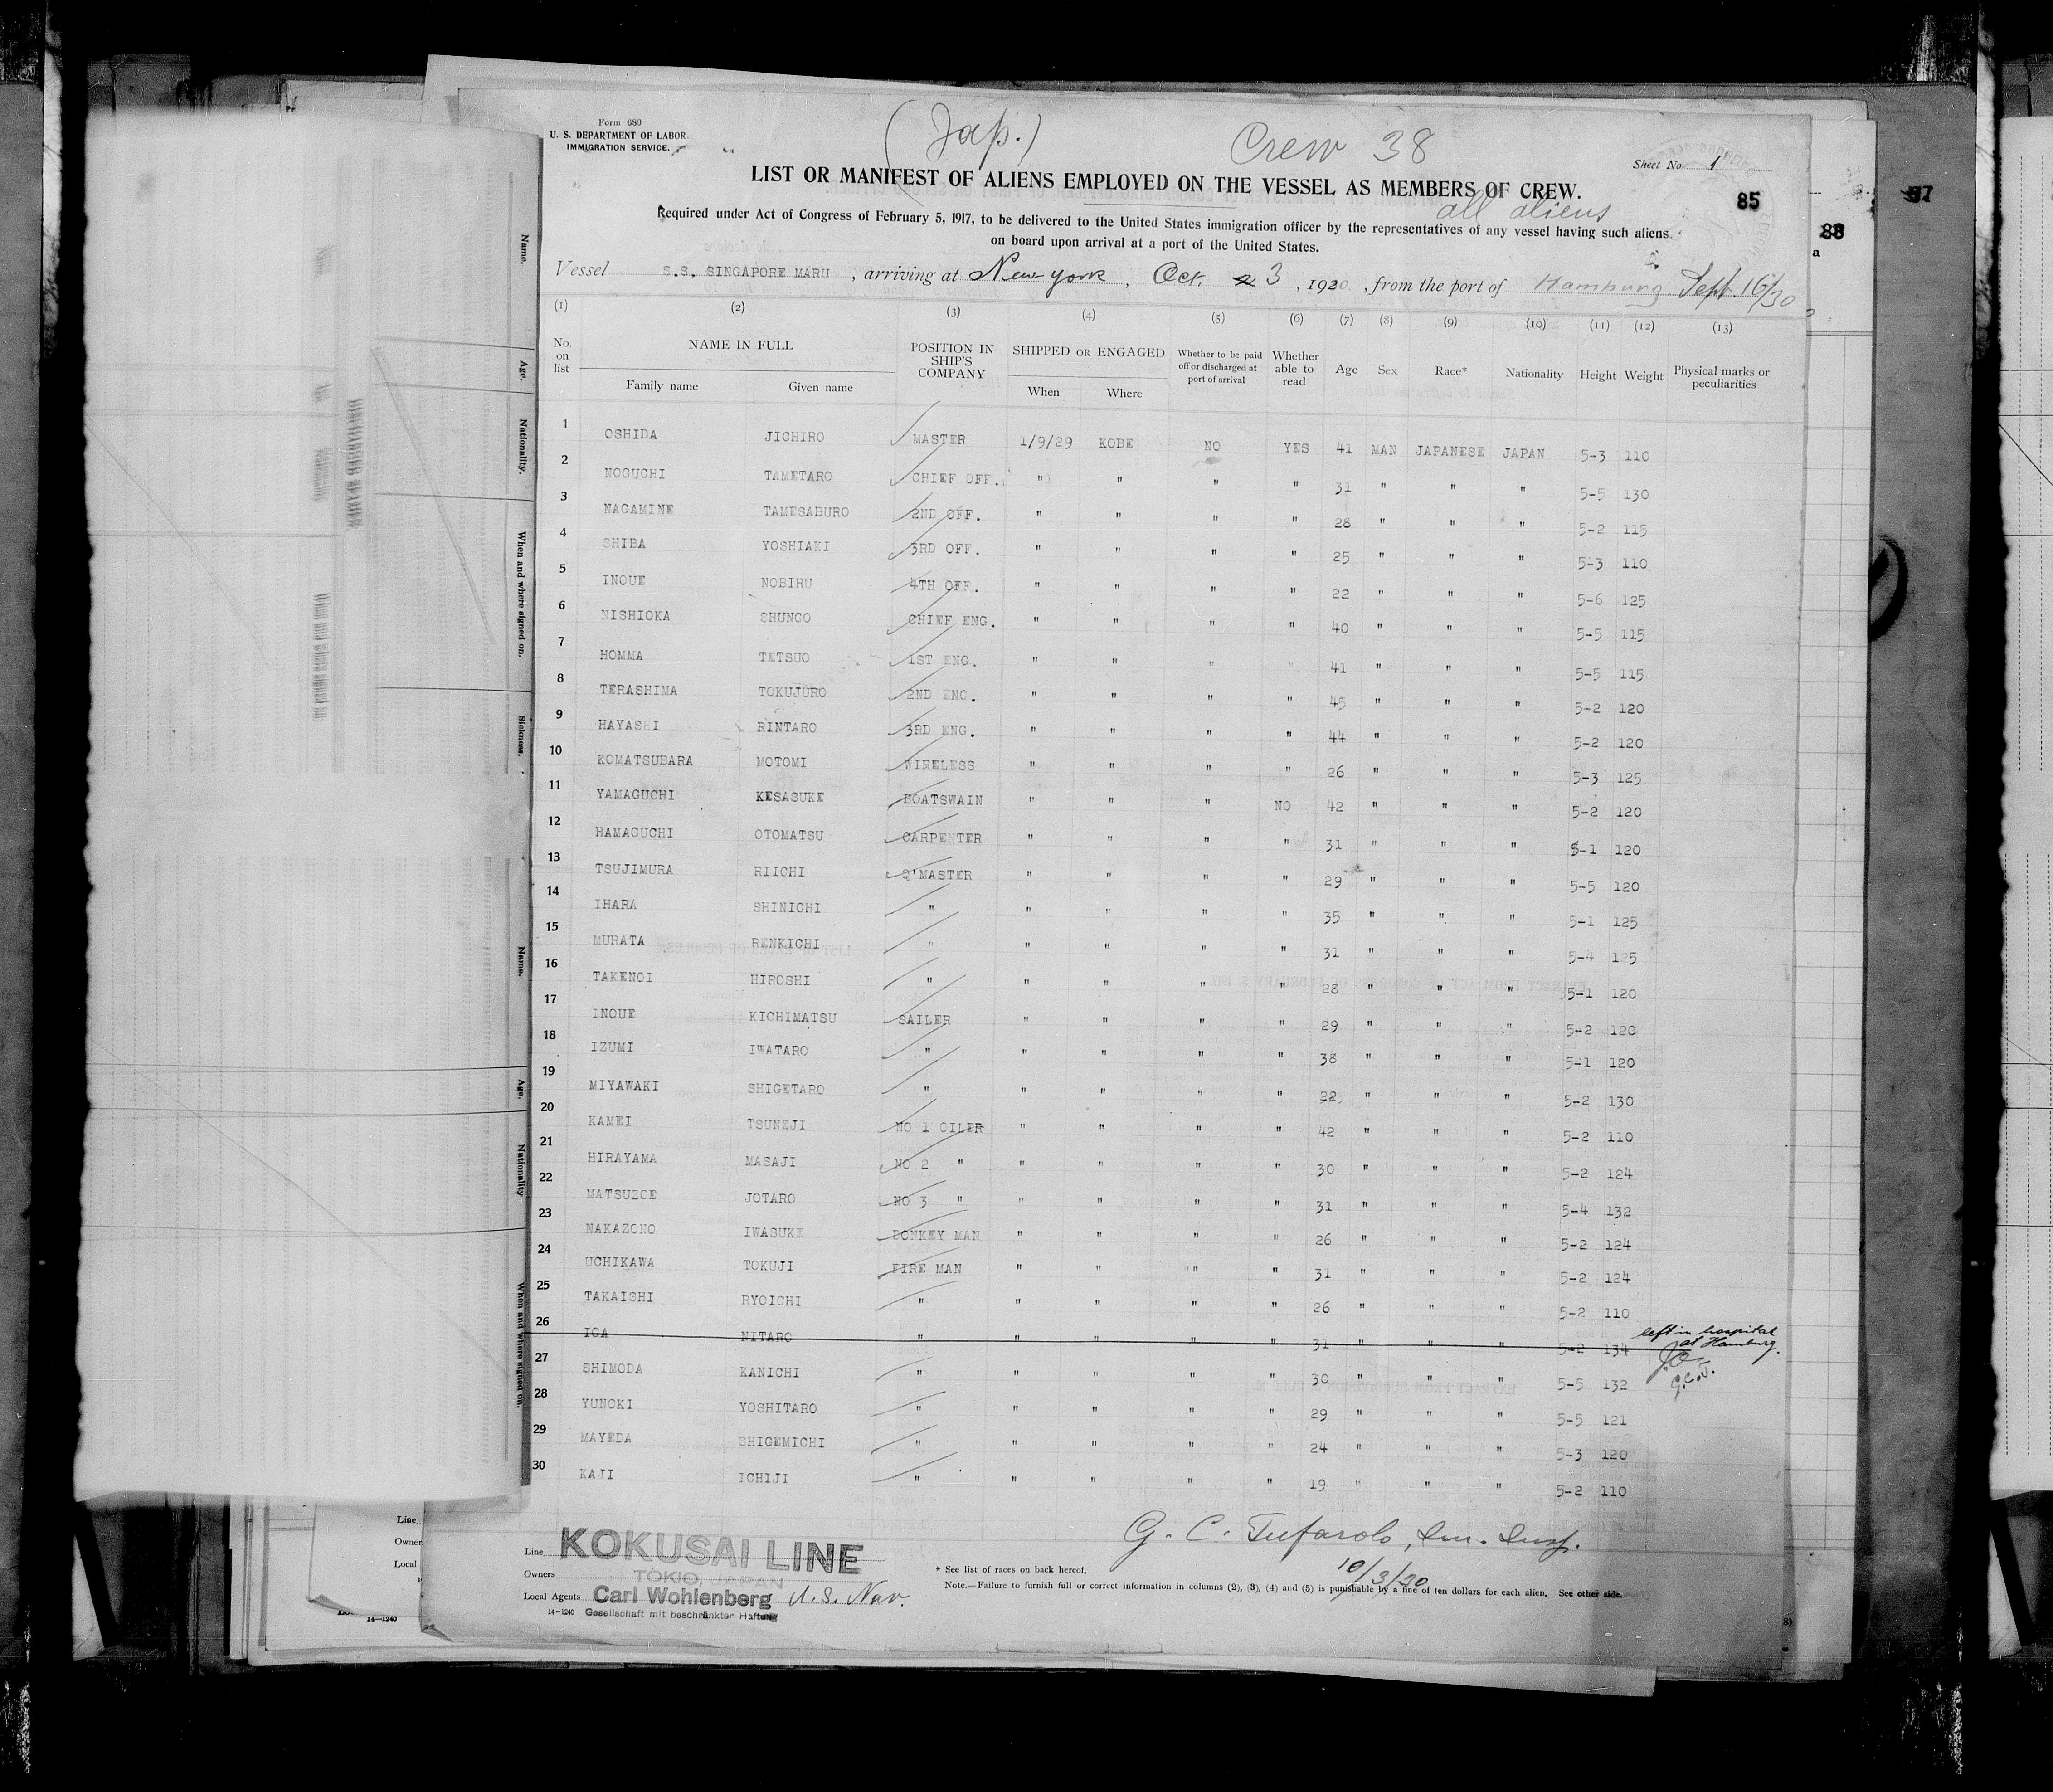 Form 680
U. S. DEPARTMENT OF LABOR
IMMIGRATION SERVICE.
(Jap.)
Crew 38
Sheet No. 1
LIST OR MANIFEST OF ALIENS EMPLOYED ON THE VESSEL AS MEMBERS OF CREW.
all aliens
85
88
a
Required under Act of Congress of February 5, 1917, to be delivered to the United States immigration officer by the representatives of any vessel having such aliens
on board upon arrival at a port of the United States.
Vessel S.S. SINGAPORE MARU, arriving at New York, Oct. 3, 1930, from the port of Hamburg Sept. 16/30
(1) (2) (3) (4) (5) (6) (7) (8) (9) (10) (11) (12) (13)
No. on list NAME IN FULL Family name Given name POSITION IN SHIP'S COMPANY SHIPPED OR ENGAGED When Where Whether to be paid off or discharged at port of arrival Whether able to read Age Sex Race* Nationality Height Weight Physical marks or peculiarities
1 OSHIDA JICHIRO MASTER 1/9/29 KOBE NO YES 41 MAN JAPANESE JAPAN 5-3 110
2 NOGUCHI TAMETARO CHIEF OFF. " " " " 31 " " " 5-5 130
3 NAGAMINE TAMESABURO 2ND OFF. " " " " 28 " " " 5-2 115
4 SHIBA YOSHIAKI 3RD OFF. " " " " 25 " " " 5-3 110
5 INOUE NOBIRU 4TH OFF. " " " " 22 " " " 5-6 125
6 NISHIOKA SHUNGO CHIEF ENG. " " " " 40 " " " 5-5 115
7 HOMMA TETSUO 1ST ENG. " " " " 41 " " " 5-5 115
8 TERASHIMA TOKUJURO 2ND ENG. " " " " 45 " " " 5-2 120
9 HAYASHI RINTARO 3RD ENG. " " " " 44 " " " 5-2 120
10 KOMATSUBARA MOTOMI WIRELESS " " " " 26 " " " 5-3 125
11 YAMAGUCHI KESASUKE BOATSWAIN " " " NO 42 " " " 5-2 120
12 HAMAGUCHI OTOMATSU CARPENTER " " " " 31 " " " 5-1 120
13 TSUJIMURA RIICHI Q'MASTER " " " " 29 " " " 5-5 120
14 IHARA SHINICHI " " " " " 35 " " " 5-1 125
15 MURATA RENKICHI " " " " " 31 " " " 5-4 125
16 TAKENOI HIROSHI " " " " " 28 " " " 5-1 120
17 INOUE KICHIMATSU SAILER " " " " 29 " " " 5-2 120
18 IZUMI IWATARO " " " " " 38 " " " 5-1 120
19 MIYAWAKI SHIGETARO " " " " " 22 " " " 5-2 130
20 KAMEI TSUNEJI NO 1 OILER " " " " 42 " " " 5-2 110
21 HIRAYAMA MASAJI NO 2 " " " " " 30 " " " 5-2 124
22 MATSUZOE JOTARO NO 3 " " " " " 31 " " " 5-4 132
23 NAKAZONO IWASUKE DONKEY MAN " " " " 26 " " " 5-2 124
24 UCHIKAWA TOKUJI FIRE MAN " " " " 31 " " " 5-2 124
25 TAKAISHI RYOICHI " " " " " 26 " " " 5-2 110
26 IGA NITARO " " " " " 31 " " " 5-2 134 left in hospital at Hamburg.
G.C.T.
27 SHIMODA KANICHI " " " " " 30 " " " 5-5 132
28 YUNOKI YOSHITARO " " " " " 29 " " " 5-5 121
29 MAYEDA SHIGEMICHI " " " " " 24 " " " 5-3 120
30 KAJI ICHIJI " " " " " 19 " " " 5-2 110
G. C. Tufarolo, Im. Insp.
10/3/30
Line KOKUSAI LINE
Owners TOKIO, JAPAN
Local Agents Carl Wohlenberg U.S. Nav.
14-1240 Gesellschaft mit beschränkter Haftung
* See list of races on back hereof.
Note.—Failure to furnish full or correct information in columns (2), (3), (4) and (5) is punishable by a fine of ten dollars for each alien. See other side.
Name.
Age.
Nationality.
When and where signed on.
Sickness.
Name.
Age.
Nationality
When and where signed on.
Line
Owner
Local
14—1240